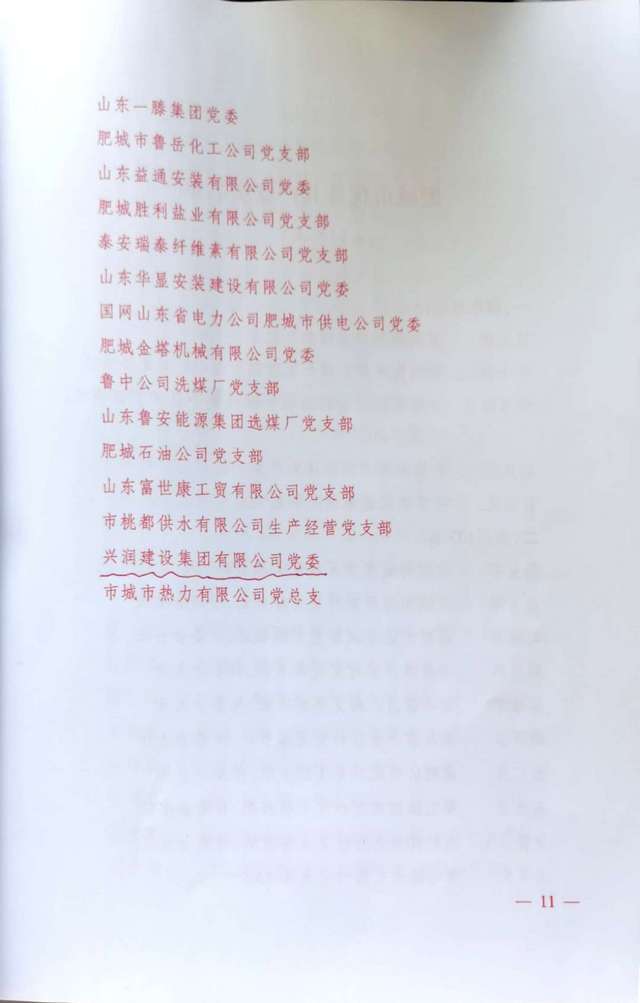 山东一滕集团党委
肥城市鲁岳化工公司党支部
山东益通安装有限公司党委
肥城胜利盐业有限公司党支部
泰安瑞泰纤维素有限公司党支部
山东华显安装建设有限公司党委
国网山东省电力公司肥城市供电公司党委
肥城金塔机械有限公司党委
鲁中公司洗煤厂党支部
山东鲁安能源集团选煤厂党支部
肥城石油公司党支部
山东富世康工贸有限公司党支部
市桃都供水有限公司生产经营党支部
兴润建设集团有限公司党委
市城市热力有限公司党总支
— 11 —